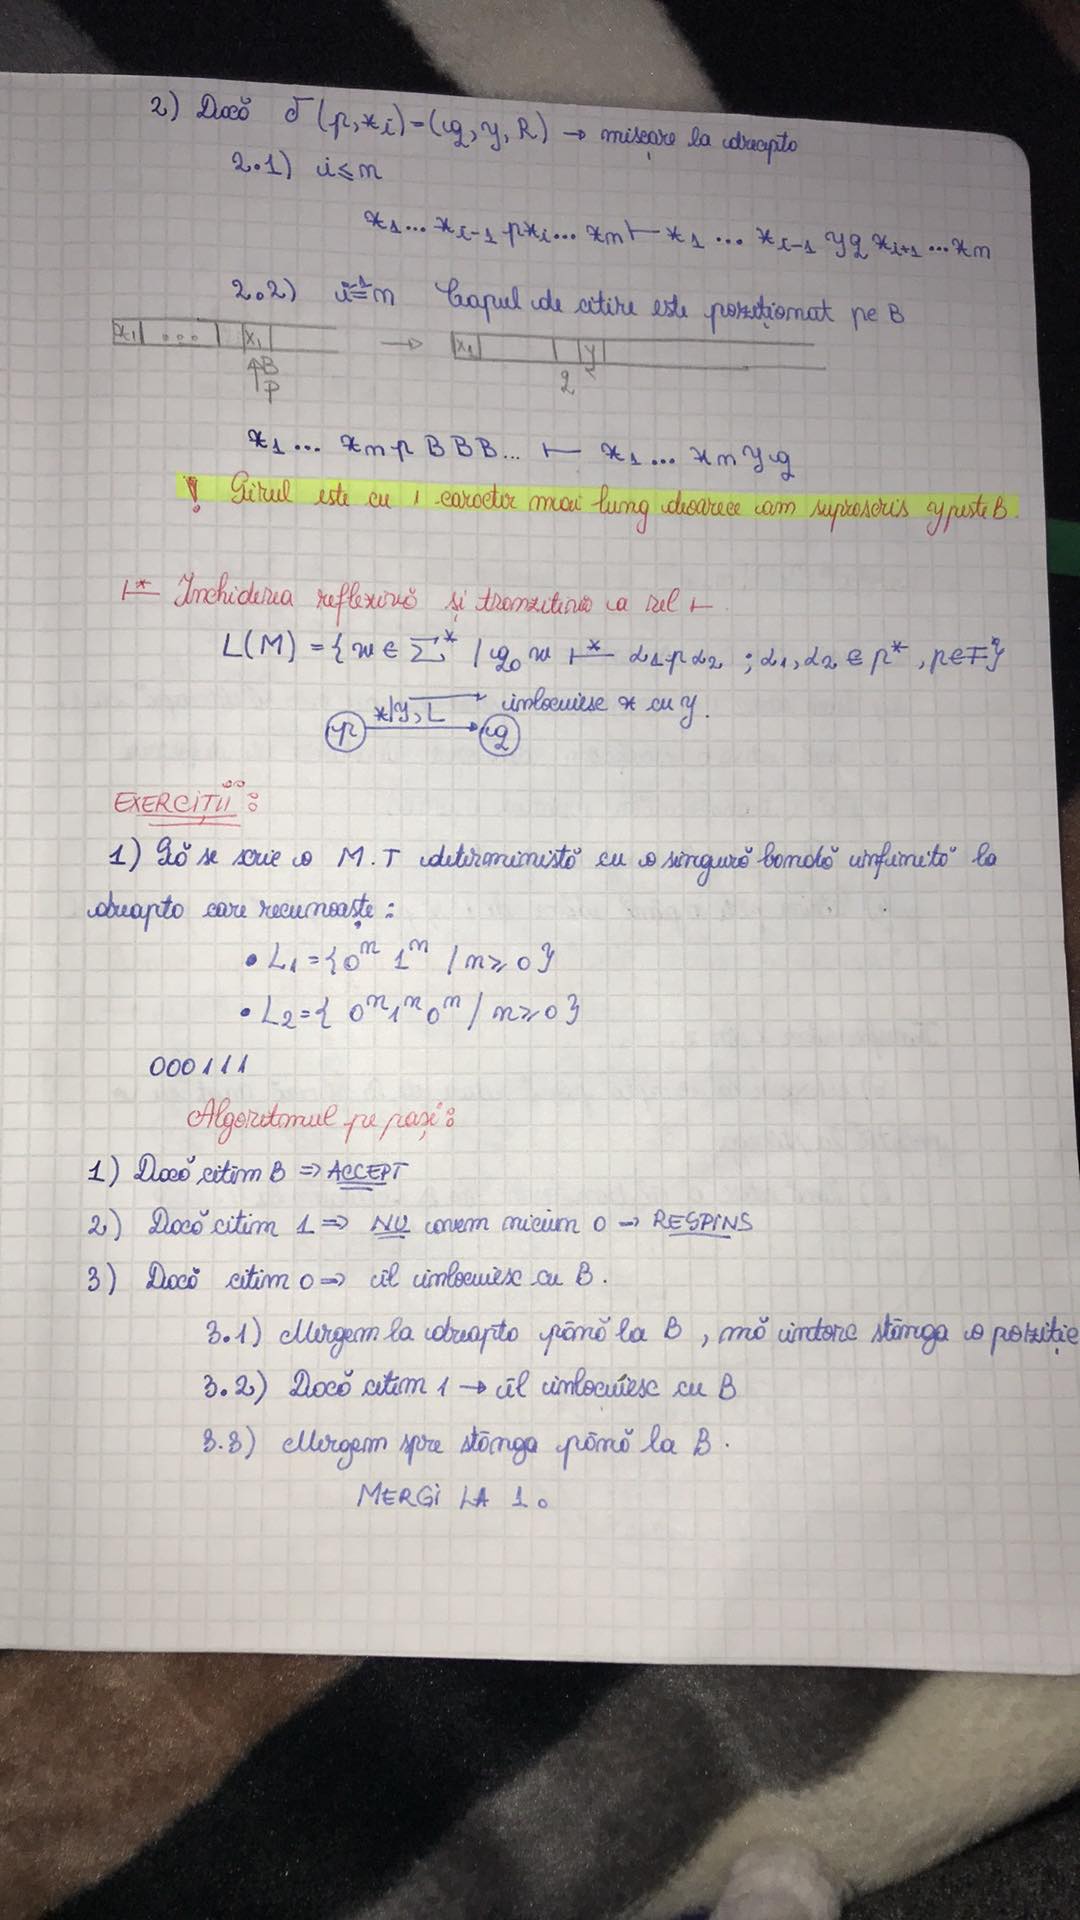 2) Dacă δ(p,xi)=(q,y,R) → mișcare la dreapta
2.1) i≤n
x1... xi-1 pxi... xn ⊢ x1 ... xi-1 yq xi+1 ...xn
2.2) i-1=n Capul de citire este poziționat pe B
x1 ... x1 → x1 y
B
p q
x1 ... xn p B B B... ⊢ x1 ... xn y q
! Șirul este cu 1 caracter mai lung deoarece am suprascris y peste B.
⊢* Închiderea reflexivă și tranzitivă a rel ⊢.
L(M) = {w ∈ Σ* / q0 w ⊢* α1 p α2 ; α1, α2 ∈ Γ*, p∈F}
p x/y, L q → înlocuiesc x cu y.
EXERCIȚII:
1) Să se scrie o M.T deterministă cu o singură bandă infinită la
dreapta care recunoaște:
• L1 = {0^n 1^n / n≥0}
• L2 = { 0^n 1^n 0^n / n≥0}
000111
Algoritmul pe pași:
1) Dacă citim B ⇒ ACCEPT
2) Dacă citim 1 ⇒ NU avem niciun 0 → RESPINS
3) Dacă citim 0 ⇒ îl înlocuiesc cu B.
3.1) Mergem la dreapta până la B, mă întorc stânga o poziție
3.2) Dacă citim 1 → îl înlocuiesc cu B
3.3) Mergem spre stânga până la B.
MERGI LA 1.